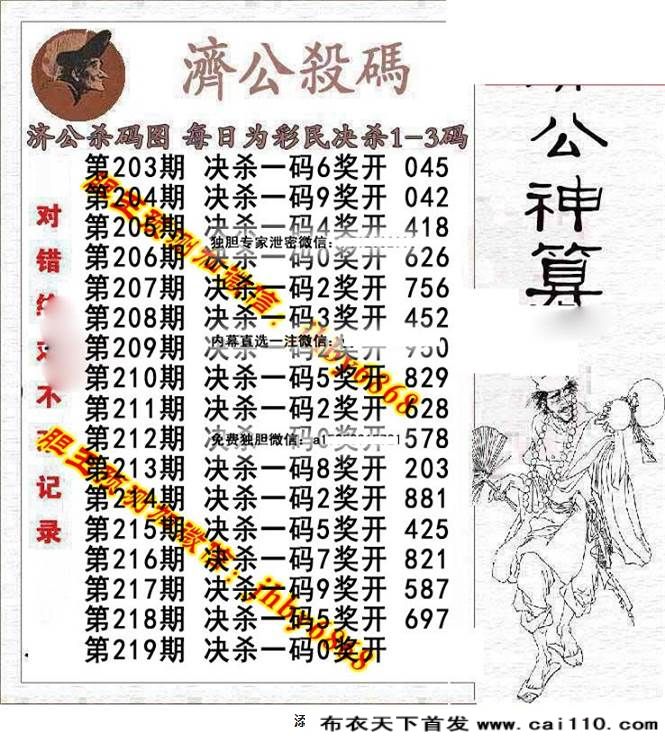 濟公殺碼
济公杀码图 每日为彩民决杀1-3码
第203期 决杀一码6奖开 045
第204期 决杀一码9奖开 042
第205期 决杀一码4奖开 418
独胆专家泄密微信:
第206期 决杀一码0奖开 626
第207期 决杀一码2奖开 756
第208期 决杀一码3奖开 452
内幕直选一注微信:
第209期 决杀一码 奖开 950
第210期 决杀一码5奖开 829
第211期 决杀一码2奖开 628
第212期 决杀一码0奖开 578
免费独胆微信:
第213期 决杀一码8奖开 203
第214期 决杀一码2奖开 881
第215期 决杀一码5奖开 425
第216期 决杀一码7奖开 821
第217期 决杀一码9奖开 587
第218期 决杀一码5奖开 697
第219期 决杀一码0奖开
对错 不 记录
公神算
布衣天下首发 www.cai110.com